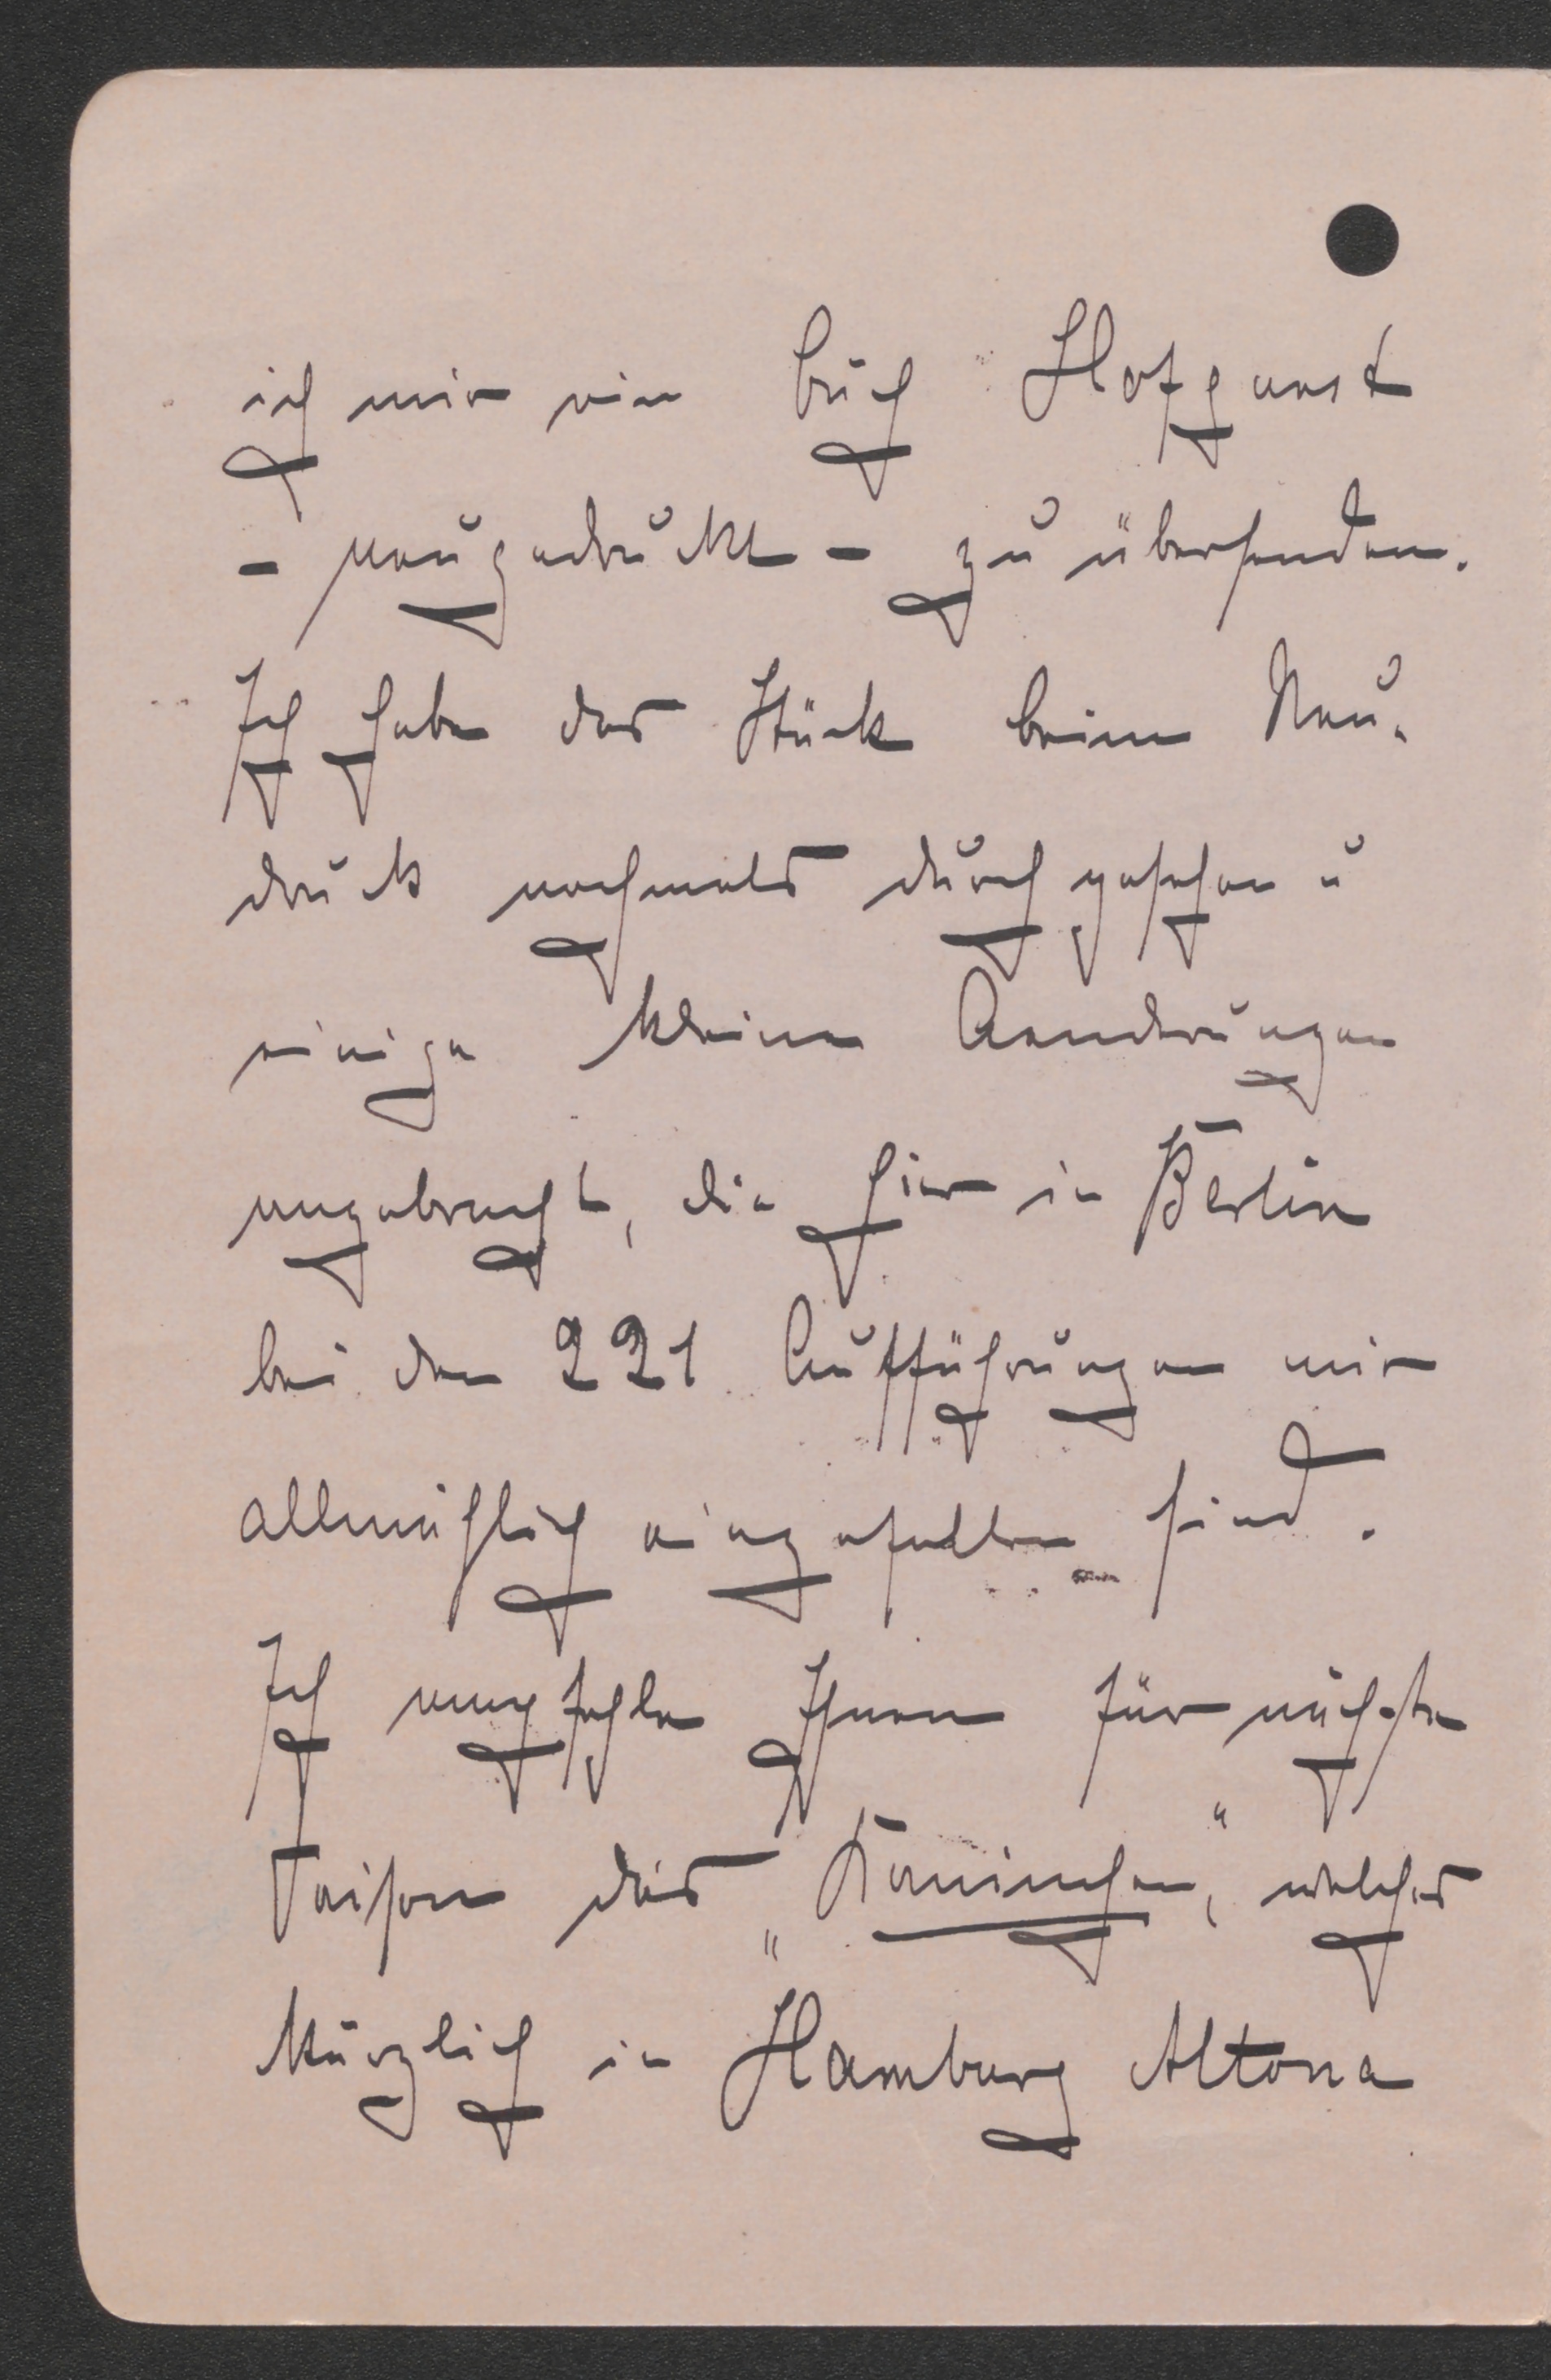 ich mir ein Buch Hofgunst
- neugedruckt - zu übersenden.
Ich habe das Stück beim Neu-
druck nochmals durchgesehen u
einige kleine Aenderungen
angebracht, die hier in Berlin
bei den 221 Aufführungen mir
allmählich eingefallen sind.
Ich empfehle Ihnen für nächste
Saison das „Kaninchen“, welches
kürzlich in Hamburg Altona